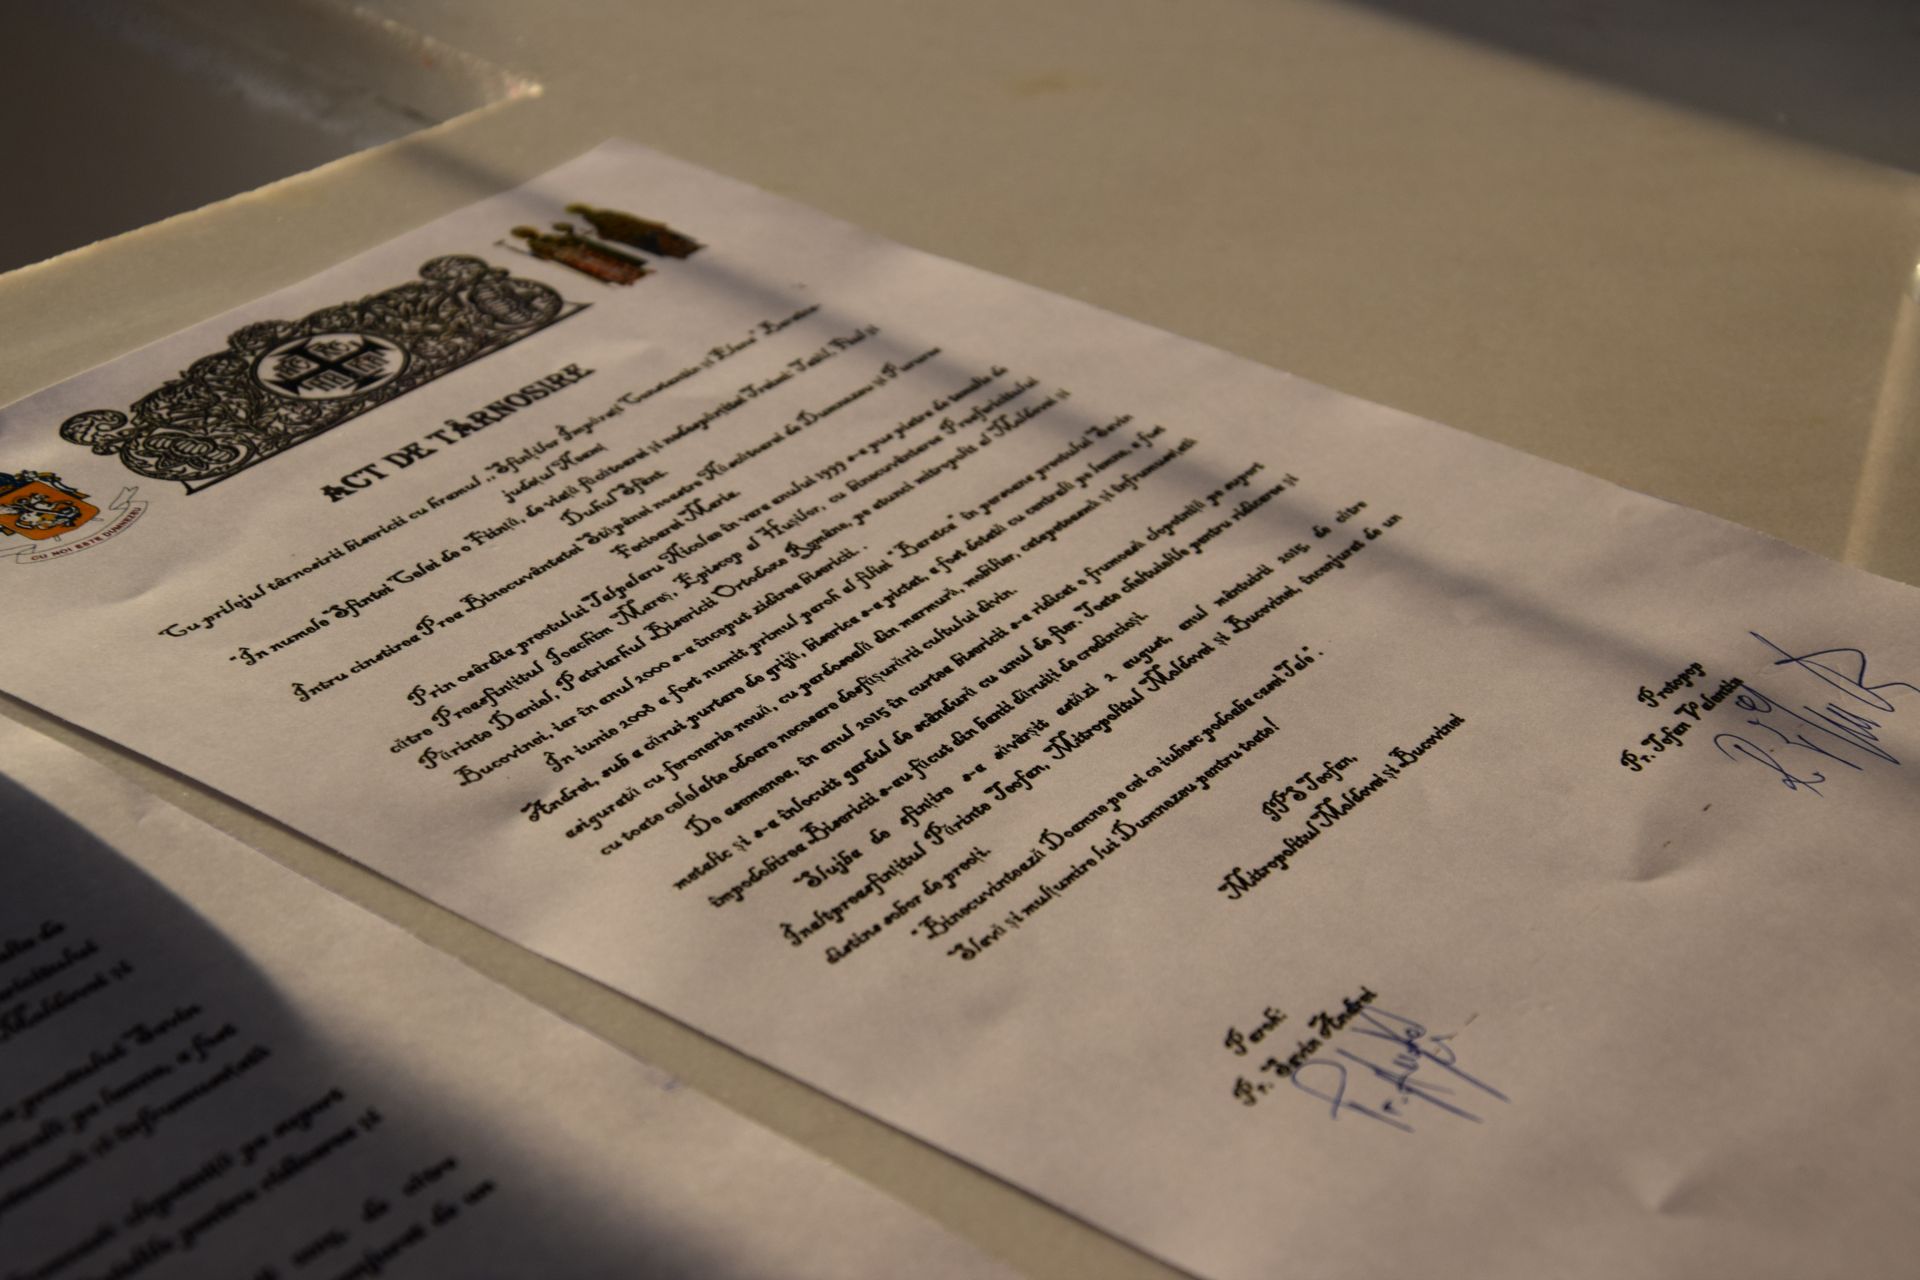 CU NOI ESTE DUMNEZEU
ACT DE TÂRNOSIRE
Cu prilejul târnosirii bisericii cu hramul „Sfinților Împărați Constantin și Elena" Baratca
județul Huși
"În numele Sfintei Celei de o Ființă, de viață făcătoarei și nedespărțitei Treimi: Tatăl, Fiul și
Duhul Sfânt.
Întru cinstirea Prea Binecuvântatei Stăpânei noastre Născătoarei de Dumnezeu și Pururea
Fecioarei Maria.
Prin osârdia preotului Nicolae în vara anului 1999 s-a pus piatra de temelie de
către Preasfințitul Ioachim Mareș, Episcop al Hușilor, cu binecuvântarea Preafericitului
Părinte Daniel, Patriarhul Bisericii Ortodoxe Române, pe atunci mitropolit al Moldovei și
Bucovinei, iar în anul 2000 s-a început zidirea bisericii.
În iunie 2008 a fost numit primul paroh al filiei "Baratca" în persoana preotului Savin
Andrei, sub a cărui purtare de grijă, biserica s-a pictat, a fost dotată cu centrală pe lemne, a fost
asigurată cu feronerie nouă, cu pardoseală din marmură, mobilier, catapeteasmă și înfrumusețată
cu toate celelalte odoare necesare desfășurării cultului divin.
De asemenea, în anul 2015 în curtea bisericii s-a ridicat o frumoasă clopotniță pe suport
metalic și s-a înlocuit gardul de scânduri cu unul de fier. Toate cheltuielile pentru ridicarea și
împodobirea Bisericii s-au făcut din banii dăruiți de credincioși.
Slujba de sfințire s-a săvârșit astăzi 2 august, anul mântuirii 2015, de către
Înaltpreasfințitul Părinte Teofan, Mitropolitul Moldovei și Bucovinei, înconjurat de un
distins sobor de preoți.
"Binecuvintează Doamne pe cei ce iubesc podoaba casei Tale".
Slavă și mulțumire lui Dumnezeu pentru toate!
ÎPS Teofan,
Mitropolitul Moldovei și Bucovinei
Protopop
Pr. Tofan Valentin
Paroh:
Pr. Savin Andrei
Moldovei și
preotului Savin
pe lemne, a fost
și înfrumusețată
clopotniță pe suport
pentru ridicarea și
2015, de către
înconjurat de un